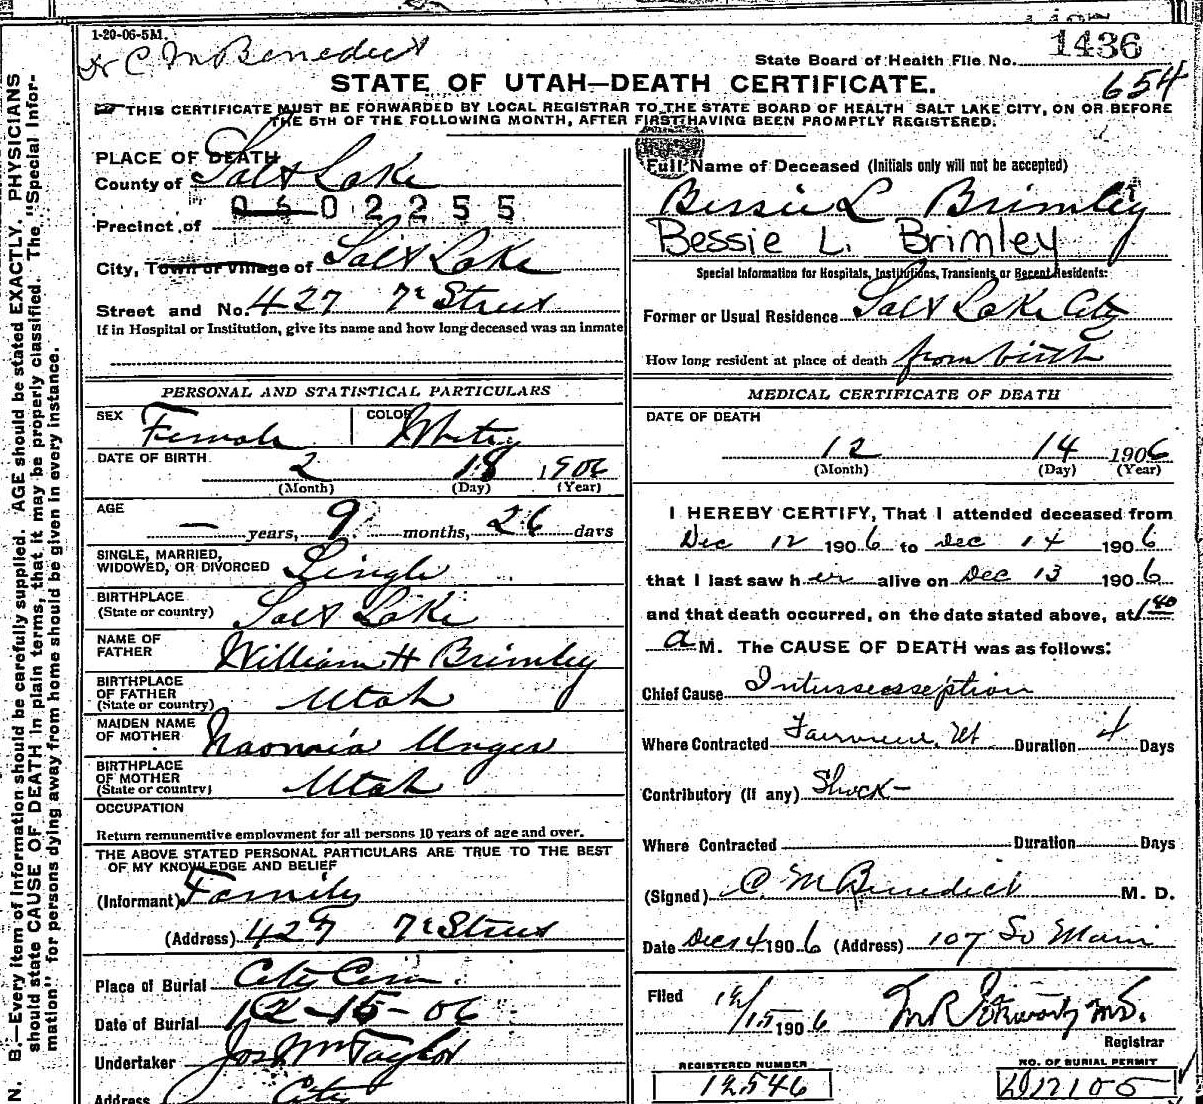 1-20-06-5M.
Dr C M Benedict
State Board of Health File No. 1436
654
STATE OF UTAH—DEATH CERTIFICATE.
THIS CERTIFICATE MUST BE FORWARDED BY LOCAL REGISTRAR TO THE STATE BOARD OF HEALTH SALT LAKE CITY, ON OR BEFORE
THE 5TH OF THE FOLLOWING MONTH, AFTER FIRST HAVING BEEN PROMPTLY REGISTERED.
PLACE OF DEATH
County of Salt Lake
0602255
Precinct of
City, Town or Village of Salt Lake
Street and No. 427 7th Street
If in Hospital or Institution, give its name and how long deceased was an inmate
Full Name of Deceased (Initials only will not be accepted)
Bessie L Brimley
Bessie L. Brimley
Special Information for Hospitals, Institutions, Transients or Recent Residents:
Former or Usual Residence Salt Lake City
How long resident at place of death from birth
PERSONAL AND STATISTICAL PARTICULARS
SEX Female COLOR White
DATE OF BIRTH 2 18 1906
(Month) (Day) (Year)
AGE — years, 9 months, 26 days
SINGLE, MARRIED,
WIDOWED, OR DIVORCED Single
BIRTHPLACE
(State or country) Salt Lake
NAME OF
FATHER William H Brimley
BIRTHPLACE
OF FATHER
(State or country) Utah
MAIDEN NAME
OF MOTHER Naomia Unger
BIRTHPLACE
OF MOTHER
(State or country) Utah
OCCUPATION
Return remunerative employment for all persons 10 years of age and over.
THE ABOVE STATED PERSONAL PARTICULARS ARE TRUE TO THE BEST
OF MY KNOWLEDGE AND BELIEF
(Informant) Family
(Address) 427 7th Street
Place of Burial City Cem.
Date of Burial 12-15-06
Undertaker Jos Wm Taylor
Address City
MEDICAL CERTIFICATE OF DEATH
DATE OF DEATH
12 14 1906
(Month) (Day) (Year)
I HEREBY CERTIFY, That I attended deceased from
Dec 12 1906 to Dec 14 1906
that I last saw her alive on Dec 13 1906
and that death occurred, on the date stated above, at 1 40
a M. The CAUSE OF DEATH was as follows:
Chief Cause Intussesseption
Where Contracted Fairview, Ut Duration 4 Days
Contributory (if any) Shock—
Where Contracted Duration Days
(Signed) C. M Benedict M. D.
Date Dec 14 1906 (Address) 107 So Main
Filed 12/15 1906
Registrar
REGISTERED NUMBER
12546
NO. OF BURIAL PERMIT
D12105
N. B.—Every item of information should be carefully supplied. AGE should be stated EXACTLY. PHYSICIANS
should state CAUSE OF DEATH in plain terms, that it may be properly classified. The "Special Infor-
mation" for persons dying away from home should be given in every instance.